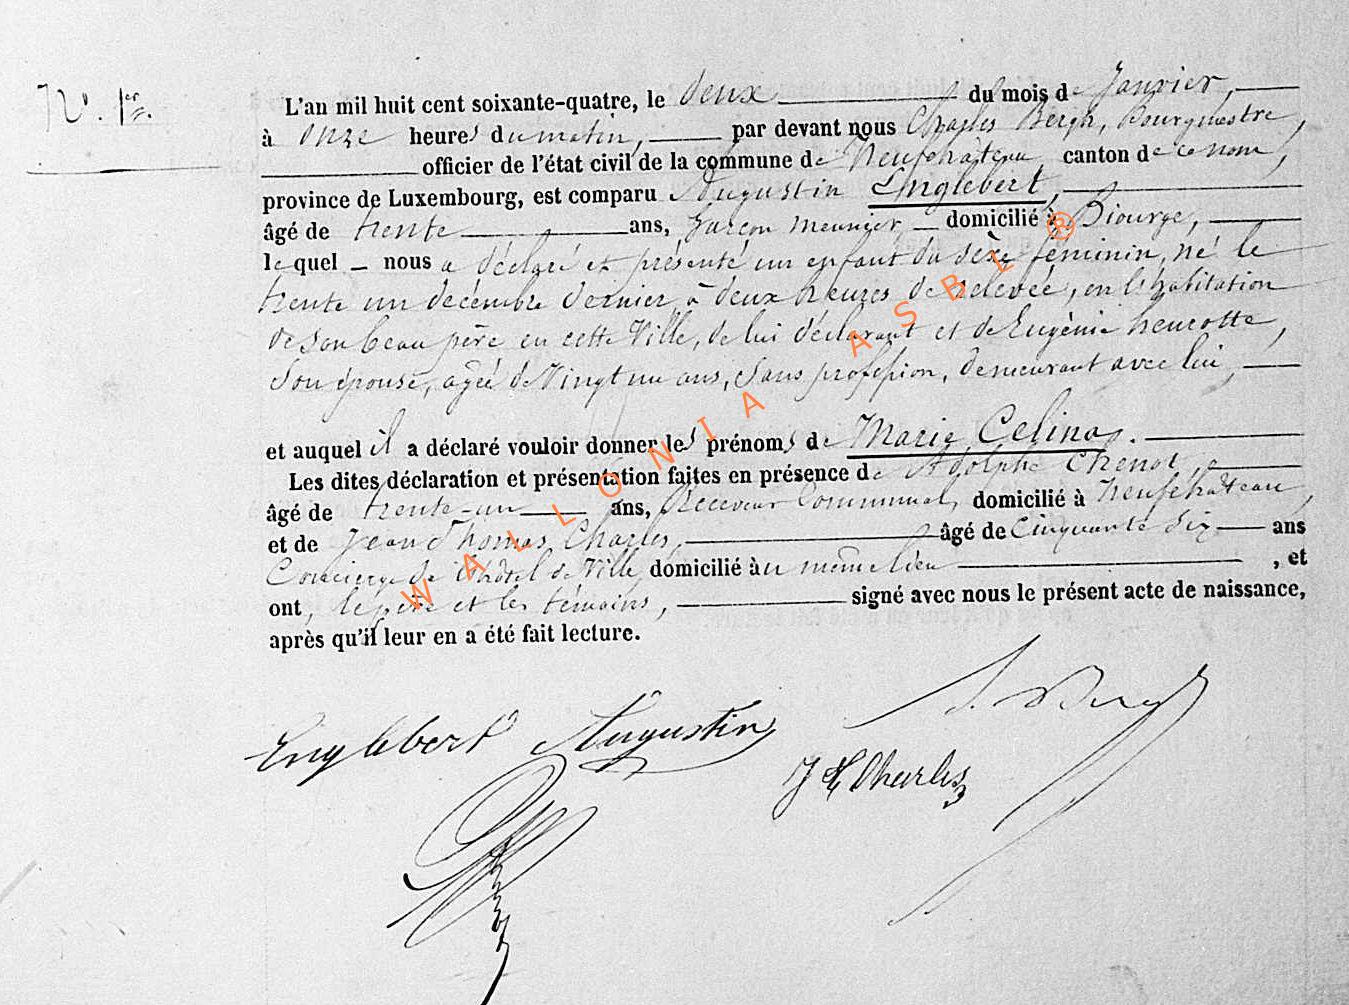 N°. 1er.
L'an mil huit cent soixante-quatre, le deux du mois de Janvier,
à onze heures du matin, par devant nous Charles Bergh, Bourgmestre,
officier de l'état civil de la commune de Neufchâteau, canton de ce nom,
province de Luxembourg, est comparu Augustin Englebert,
âgé de trente ans, garçon meunier domicilié à Biourge,
lequel nous a déclaré et présenté un enfant du sèxe féminin, né le
trente un décembre dernier, à deux heures de relevée, en l'habitation
de son beau père en cette Ville, de lui déclarant et de Eugénie heurotte,
Son épouse, agée de Vingt un ans, Sans profession, demeurant avec lui,
et auquel il a déclaré vouloir donner les prénoms de Marie Celina.
Les dites déclaration et présentation faites en présence de Adolphe Chenot,
âgé de trente-un ans, Receveur Communal, domicilié à Neufchâteau,
et de Jean Thomas Charles, âgé de cinquante Six ans
Concierge de l'hôtel de Ville, domicilié au même lieu , et
ont, le père et les témoins, signé avec nous le présent acte de naissance,
après qu'il leur en a été fait lecture.
Englebert Augustin
J Th Charles
WALLONIA ASBL ®